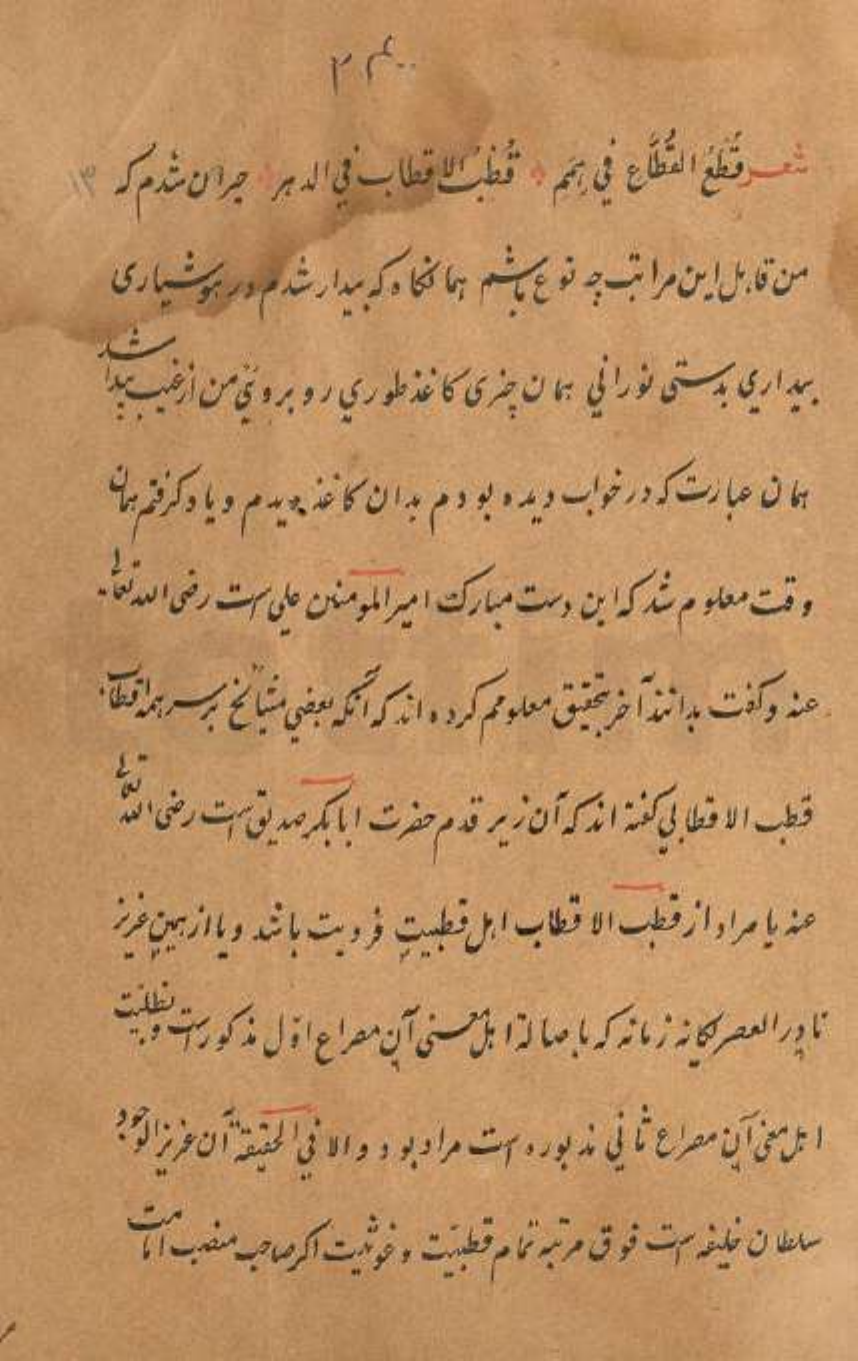 شعر قُطَعُ القُطَّاعِ فی هِمَمٍ قُطْبُ الاقطاب فی الدهر حیران شدم که
من قابل این مراتب چه نوع باشم همانگاه که بیدار شدم در هوشیاری
بیداري بدستی نورانی همان چیزی کاغذ طوري روبروئ من از غیب پیدا شد
همان عبارت که در خواب دیده بودم بدان کاغذ دیدم و یاد کرفتم همان
وقت معلوم شد که این دست مبارک امیر المومنین علی است رضی الله تعالی
عنه وکفت بدانند آخر بتحقیق معلومم کرده اند که آنکه بعضی مشائخ بر سر همه اقطاب
قطب الاقطابی کفته اند که آن زیر قدم حضرت ابابکر صدیق است رضی الله تعالی
عنه یا مراد از قطب الاقطاب اهل قطبیتِ فردیت باشد ویا از همین عزیز
نادر العصر یکانه زمانه که باصالة اهل معنی آن مصراع اوّل مذکور است وبظلیّت
اهل معنی آن مصراع ثانی مذبوره است مراد بود والا فی الحقیقة آن عزیز الوجود
سلطان خلیفه است فوق مرتبه تمام قطبیّت و غوثیت اکر صاحب منصب امامت